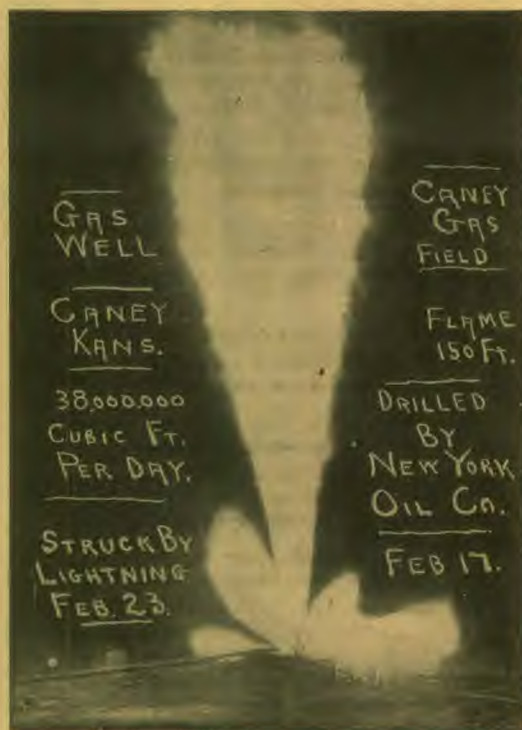 GAS
WELL
CANEY
KANS.
38,000,000
CUBIC FT.
PER DAY.
STRUCK BY
LIGHTNING
FEB. 23.
CANEY
GAS
FIELD
FLAME
150 FT.
DRILLED
BY
NEW YORK
OIL CO.
FEB 17.